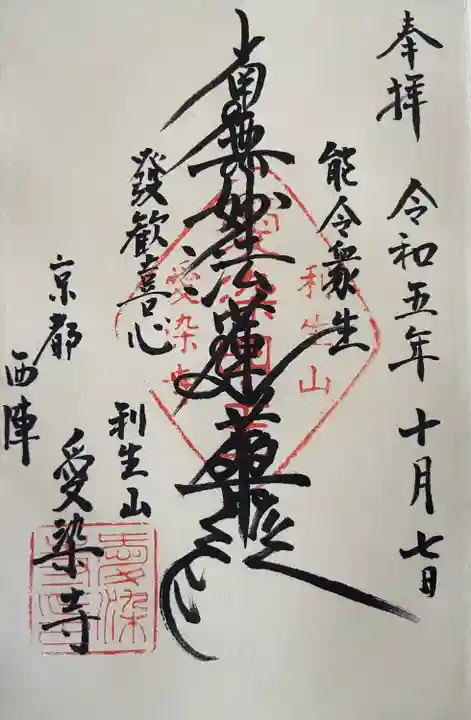 奉拝 令和五年十月七日
能令衆生
南無妙法蓮華経
發歓喜心
利生山
愛染寺
京都
西陣
利生山
愛染寺
愛染